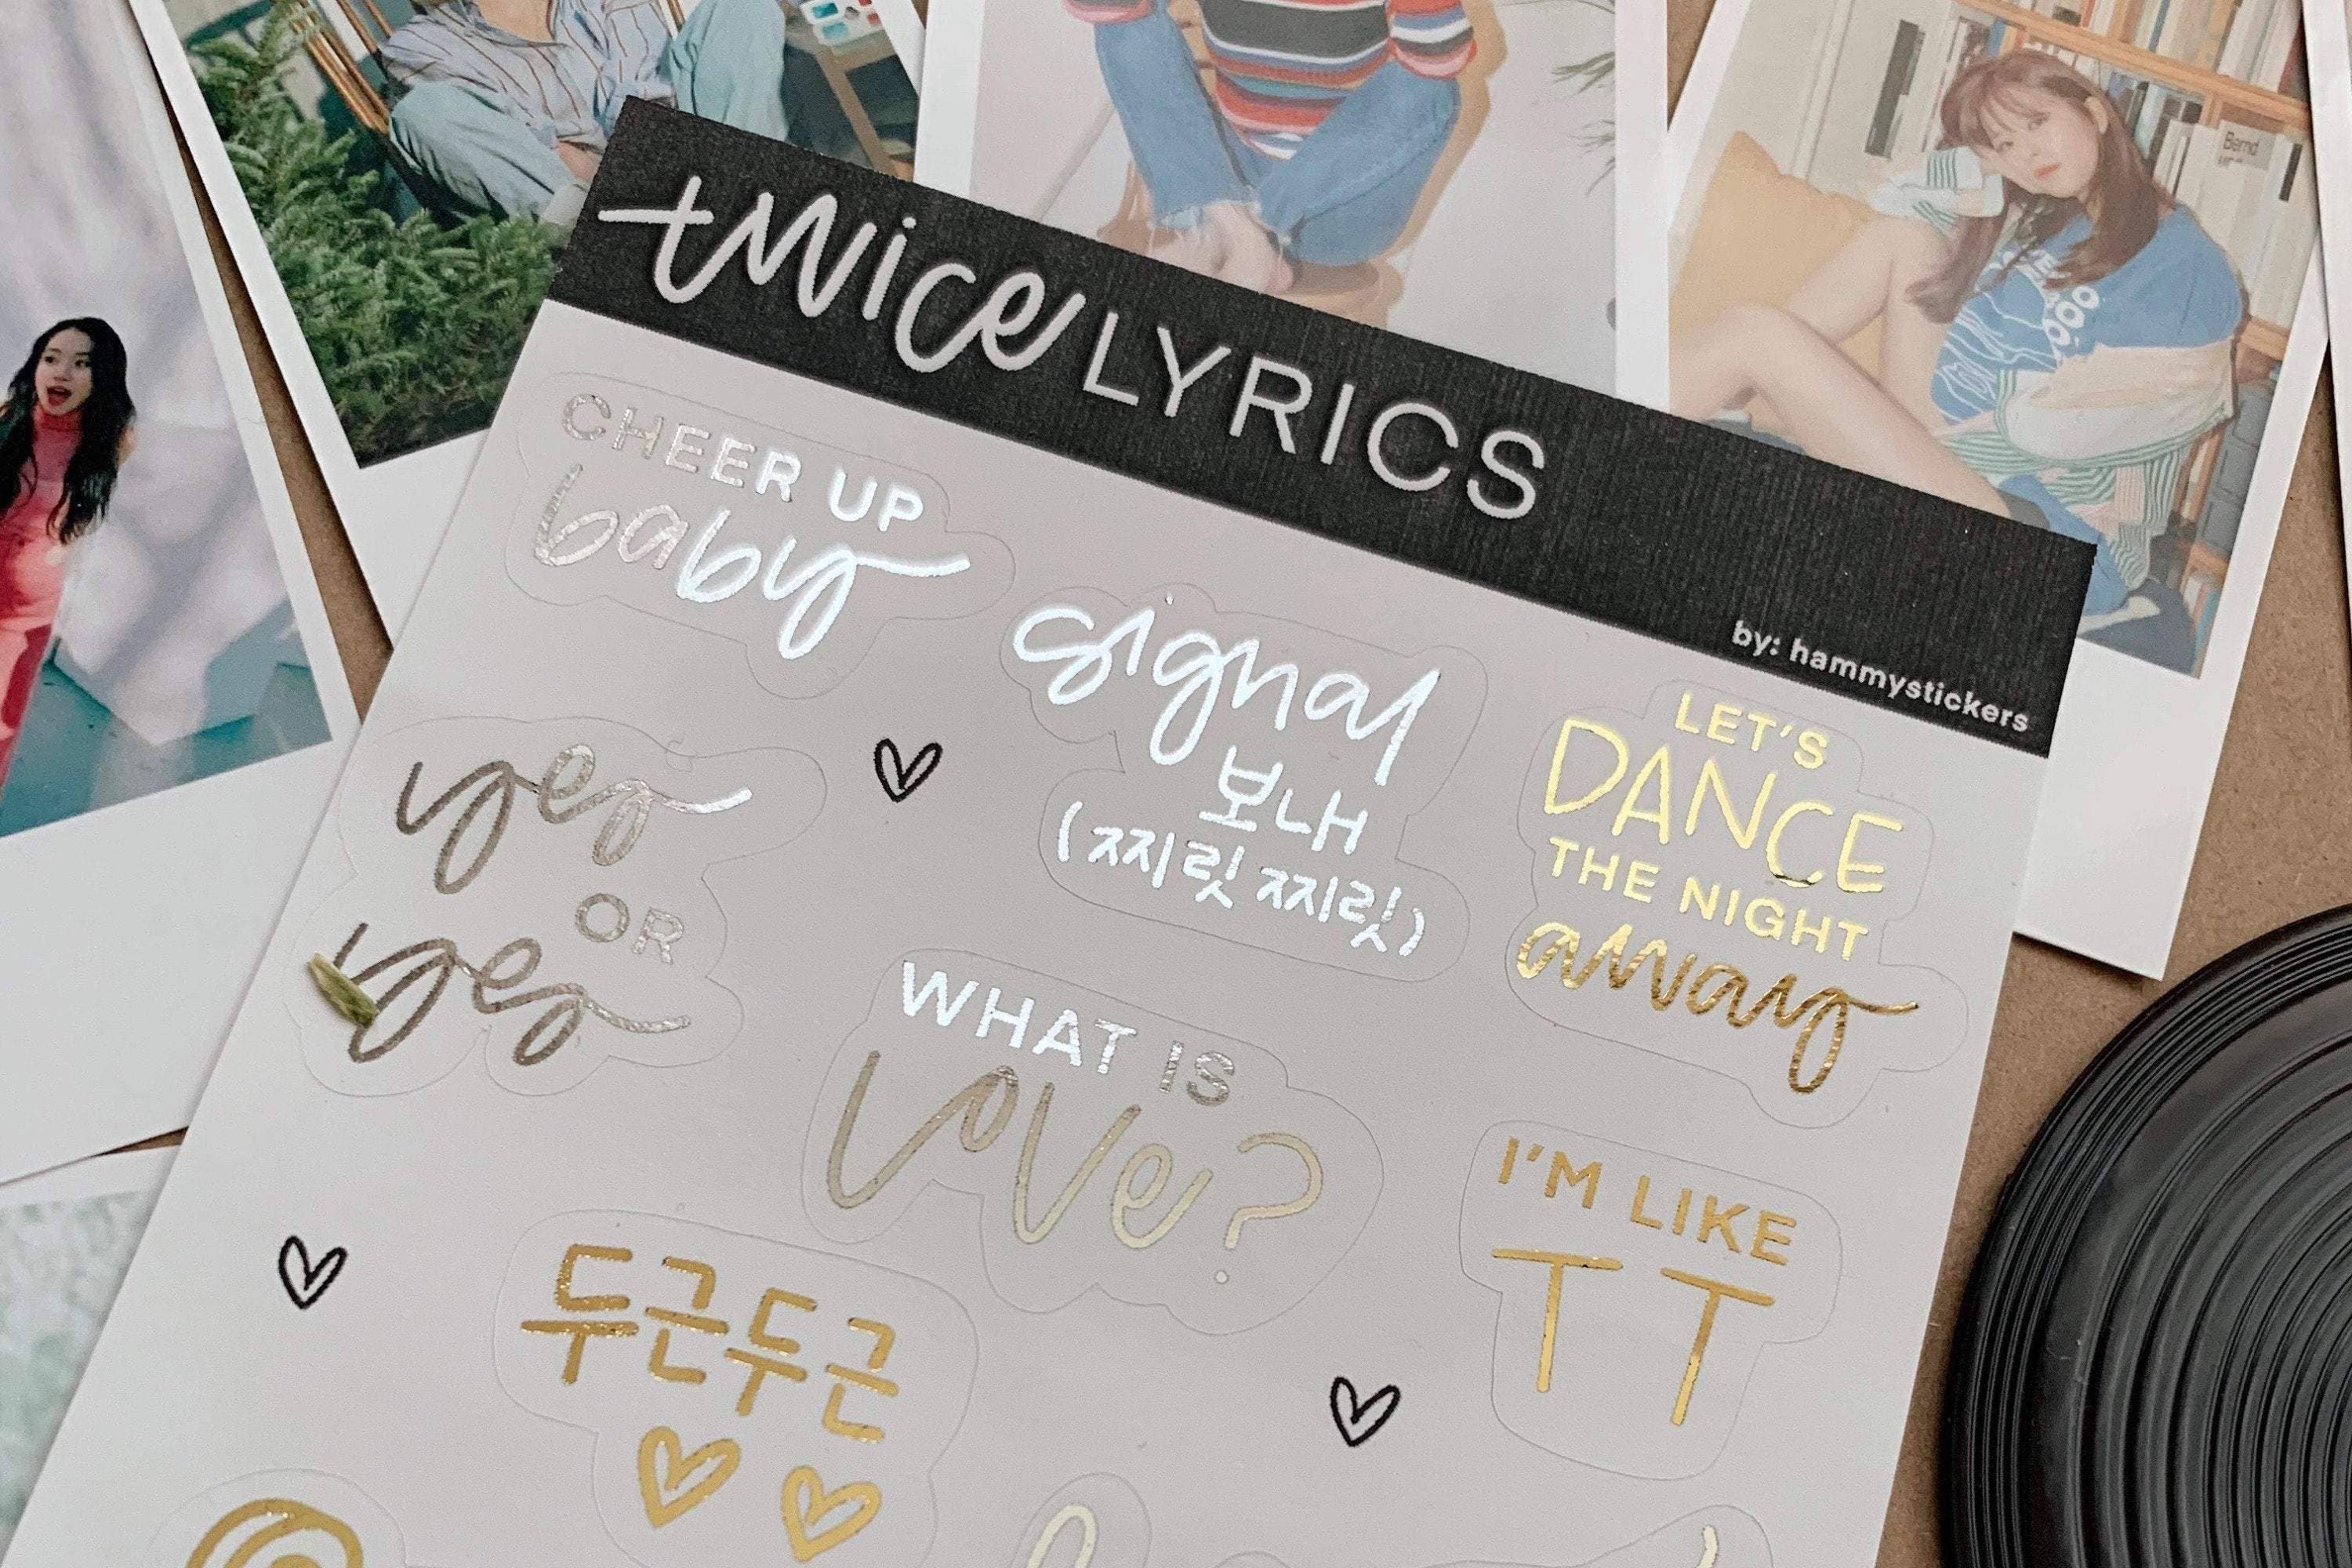 twice LYRICS
by: hammystickers
CHEER UP
baby
signal
보내
(찌릿찌릿)
LET'S
DANCE
THE NIGHT
away
yes
OR
yes
WHAT IS
love?
I'M LIKE
TT
두근두근